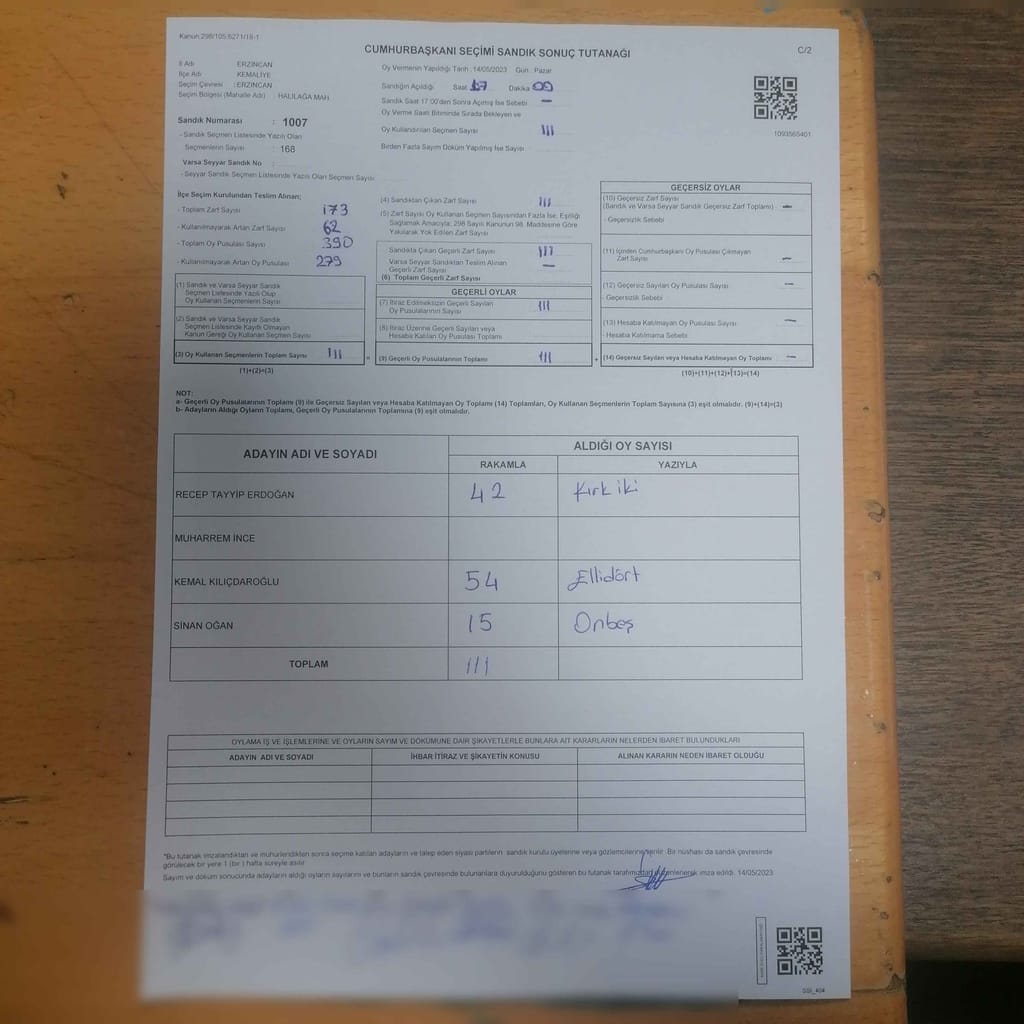 Kanun:298/105:6271/18-1
CUMHURBAŞKANI SEÇİMİ SANDIK SONUÇ TUTANAĞI
C/2
İl Adı : ERZİNCAN
İlçe Adı : KEMALİYE
Seçim Çevresi : ERZİNCAN
Seçim Bölgesi (Mahalle Adı) : HALİLAĞA MAH
Oy Vermenin Yapıldığı Tarih : 14/05/2023 Gün : Pazar
Sandığın Açıldığı Saat 17 Dakika 00
Sandık Saat 17:00'den Sonra Açılmış İse Sebebi —
Oy Verme Saati Bitiminde Sırada Bekleyen ve
Oy Kullandırılan Seçmen Sayısı 111
Birden Fazla Sayım Döküm Yapılmış İse Sayısı
1093565401
Sandık Numarası : 1007
- Sandık Seçmen Listesinde Yazılı Olan
Seçmenlerin Sayısı : 168
Varsa Seyyar Sandık No :
- Seyyar Sandık Seçmen Listesinde Yazılı Olan Seçmen Sayısı
İlçe Seçim Kurulundan Teslim Alınan;
- Toplam Zarf Sayısı 173
- Kullanılmayarak Artan Zarf Sayısı 62
- Toplam Oy Pusulası Sayısı 390
- Kullanılmayarak Artan Oy Pusulası 279
(1) Sandık ve Varsa Seyyar Sandık
Seçmen Listesinde Yazılı Olup
Oy Kullanan Seçmenlerin Sayısı
(2) Sandık ve Varsa Seyyar Sandık
Seçmen Listesinde Kayıtlı Olmayan
Kanun Gereği Oy Kullanan Seçmen Sayısı
(3) Oy Kullanan Seçmenlerin Toplam Sayısı 111
(1)+(2)=(3)
(4) Sandıktan Çıkan Zarf Sayısı 111
(5) Zarf Sayısı Oy Kullanan Seçmen Sayısından Fazla İse, Eşitliği
Sağlamak Amacıyla; 298 Sayılı Kanunun 98. Maddesine Göre
Yakılarak Yok Edilen Zarf Sayısı
Sandıkta Çıkan Geçerli Zarf Sayısı 111
Varsa Seyyar Sandıktan Teslim Alınan
Geçerli Zarf Sayısı —
(6) Toplam Geçerli Zarf Sayısı
GEÇERLİ OYLAR
(7) İtiraz Edilmeksizin Geçerli Sayılan
Oy Pusulalarının Sayısı 111
(8) İtiraz Üzerine Geçerli Sayılan veya
Hesaba Katılan Oy Pusulası Toplamı
= (9) Geçerli Oy Pusulalarının Toplamı 111
GEÇERSİZ OYLAR
(10) Geçersiz Zarf Sayısı
(Sandık ve Varsa Seyyar Sandık Geçersiz Zarf Toplamı) —
- Geçersizlik Sebebi
(11) İçinden Cumhurbaşkanı Oy Pusulası Çıkmayan
Zarf Sayısı —
(12) Geçersiz Sayılan Oy Pusulası Sayısı —
- Geçersizlik Sebebi
(13) Hesaba Katılmayan Oy Pusulası Sayısı —
- Hesaba Katılmama Sebebi
+ (14) Geçersiz Sayılan veya Hesaba Katılmayan Oy Toplamı —
(10)+(11)+(12)+(13)=(14)
NOT:
a- Geçerli Oy Pusulalarının Toplamı (9) ile Geçersiz Sayılan veya Hesaba Katılmayan Oy Toplamı (14) Toplamları, Oy Kullanan Seçmenlerin Toplam Sayısına (3) eşit olmalıdır. (9)+(14)=(3)
b- Adayların Aldığı Oyların Toplamı, Geçerli Oy Pusulalarının Toplamına (9) eşit olmalıdır.
ADAYIN ADI VE SOYADI
ALDIĞI OY SAYISI
RAKAMLA YAZIYLA
RECEP TAYYİP ERDOĞAN 42 Kırk iki
MUHARREM İNCE
KEMAL KILIÇDAROĞLU 54 Ellidört
SİNAN OĞAN 15 Onbeş
TOPLAM 111
OYLAMA İŞ VE İŞLEMLERİNE VE OYLARIN SAYIM VE DÖKÜMÜNE DAİR ŞİKAYETLERLE BUNLARA AİT KARARLARIN NELERDEN İBARET BULUNDUKLARI
ADAYIN ADI VE SOYADI İHBAR İTİRAZ VE ŞİKAYETİN KONUSU ALINAN KARARIN NEDEN İBARET OLDUĞU
*Bu tutanak imzalandıktan ve mühürlendikten sonra seçime katılan adayların ve talep eden siyasi partilerin sandık kurulu üyelerine veya gözlemcilerine verilir. Bir nüshası da sandık çevresinde
görülecek bir yere 1 (bir) hafta süreyle asılır
Sayım ve döküm sonucunda adayların aldığı oyların sayılarını ve bunların sandık çevresinde bulunanlara duyurulduğunu gösteren bu tutanak tarafımızdan düzenlenerek imza edildi. 14/05/2023
SSI_404